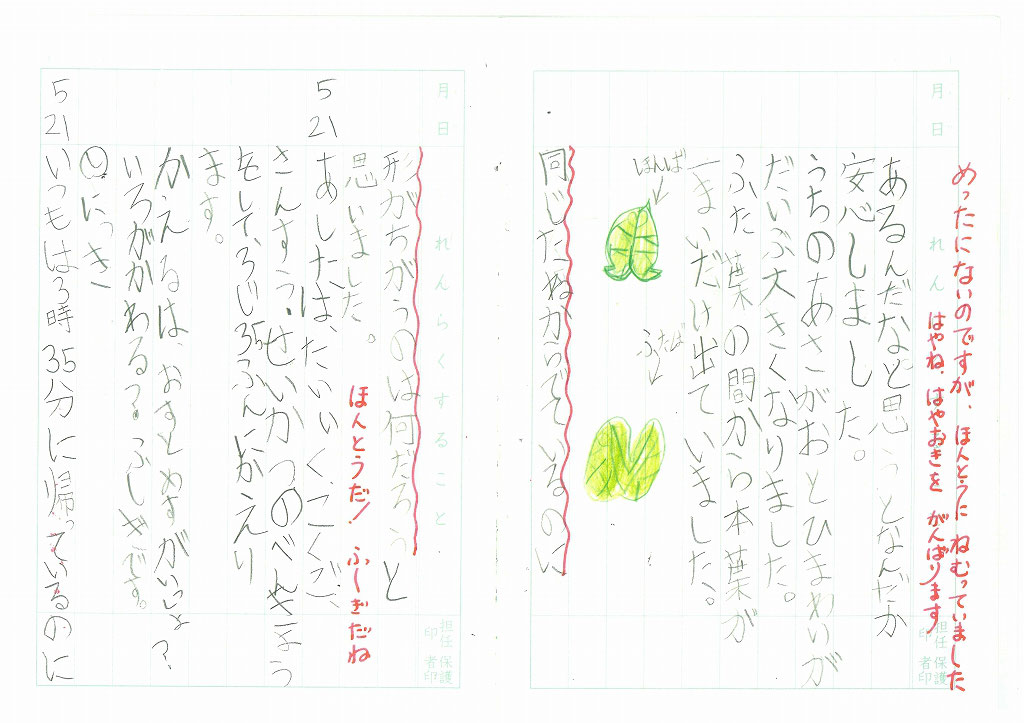 月日
れんらくすること
担任印
保護者印
めったにないのですが、ほんとうにねむっていました
はやね、はやおきをがんばります
あるんだなと思うとなんだか
安心しました。
うちのあさがおとひまわりが
だいぶ大きくなりました。
ふた葉の間から本葉が
一まいだけ出ていました。
ほんば
ふたば
同じたねからでているのに
月日
れんらくすること
担任印
保護者印
形がちがうのは何だろうと
思いました。
ほんとうだ!ふしぎだね
5 21
あしたは、たいいく、こくご、
さんすう、せいかつのべんきょう
をして、3じ35ふんにかえり
ます。
かえるは、おすとめすがいっしょ?
いろがかわる?ふしぎです。
の にっき
5 21
いつもは3時35分に帰っているのに